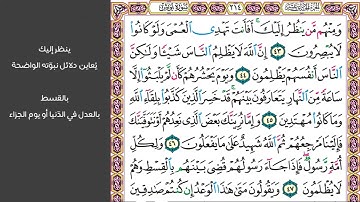 وَمِنْهُم مَّن يَنظُرُ إِلَيْكَ أَفَأَنتَ تَهْدِي ٱلْعُمْىَ وَلَوْ كَانُوا۟
لَا يُبْصِرُونَ ٤٣ إِنَّ ٱللَّهَ لَا يَظْلِمُ ٱلنَّاسَ شَيْـًٔا وَلَٰكِنَّ
ٱلنَّاسَ أَنفُسَهُمْ يَظْلِمُونَ ٤٤ وَيَوْمَ يَحْشُرُهُمْ كَأَن لَّمْ يَلْبَثُوٓا۟ إِلَّا
سَاعَةً مِّنَ ٱلنَّهَارِ يَتَعَارَفُونَ بَيْنَهُمْ قَدْ خَسِرَ ٱلَّذِينَ كَذَّبُوا۟ بِلِقَآءِ ٱللَّهِ
وَمَا كَانُوا۟ مُهْتَدِينَ ٤٥ وَإِمَّا نُرِيَنَّكَ بَعْضَ ٱلَّذِى نَعِدُهُمْ أَوْ نَتَوَفَّيَنَّكَ
فَإِلَيْنَا مَرْجِعُهُمْ ثُمَّ ٱللَّهُ شَهِيدٌ عَلَىٰ مَا يَفْعَلُونَ ٤٦ وَلِكُلِّ
أُمَّةٍ رَّسُولٌ فَإِذَا جَآءَ رَسُولُهُمْ قُضِىَ بَيْنَهُم بِٱلْقِسْطِ وَهُمْ
لَا يُظْلَمُونَ ٤٧ وَيَقُولُونَ مَتَىٰ هَٰذَا ٱلْوَعْدُ إِن كُنتُمْ صَٰدِقِينَ
ينظر إليك
يُعاين دلائل نبوّته الواضحة
بالقسط
بالعدل في الدّنيا أو يوم الجزاء